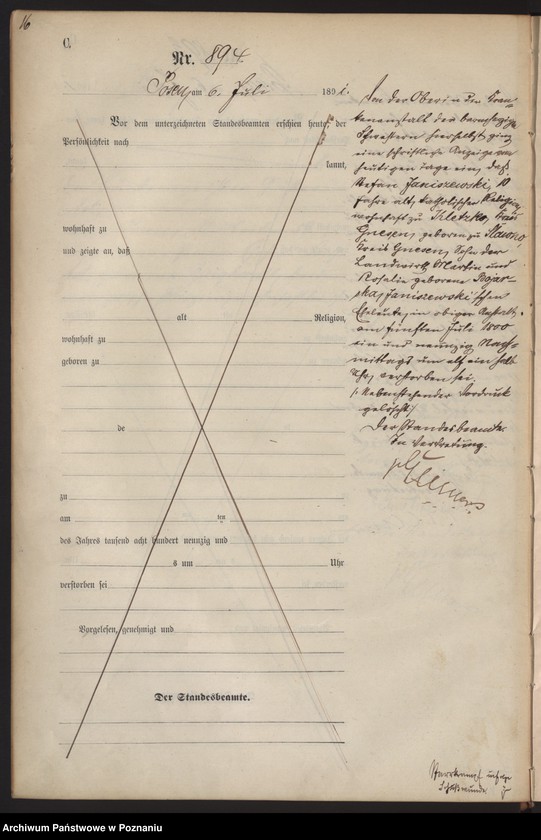 16
C.
Nr. 894
Posen, am 6. Juli 1891.
Vor dem unterzeichneten Standesbeamten erschien heute, der
Persönlichkeit nach
kannt,
wohnhaft zu
und zeigte an, daß
alt Religion,
wohnhaft zu
geboren zu
de
zu
am um
des Jahres tausend acht hundert neunzig und
s um Uhr
verstorben sei
Vorgelesen, genehmigt und
Der Standesbeamte.
Von der Oberin der Kran-
kenanstalt der barmherzigen
Schwestern hierselbst ging
eine schriftliche Anzeige vom
heutigen Tage ein, daß
Stefan Janiszewski, 10
Jahre alt, katholischer Religion,
wohnhaft zu Kletzko, Kreis
Gnesen, geboren zu Slawno,
Kreis Gnesen, Sohn der
Landwirth Martin und
Rosalia geborene Bojar-
ska, Janiszewski'schen
Eheleute, in obiger Anstalt
am fünften Juli 1800
ein und neunzig Nach-
mittags um elf ein halb
Uhr, verstorben sei.
/: Nebenstehender Vordruck
gelöscht :/
Der Standesbeamte.
In Vertretung.
Starrkrampf infolge
Schußwunde
Archiwum Państwowe w Poznaniu